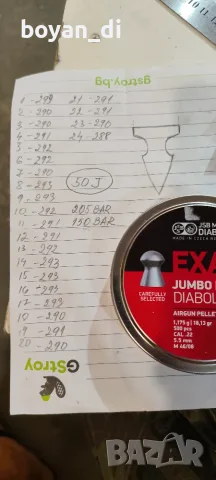 boyan_di
gstroy.bg
1 - 299 21 - 291
2 - 290 22 - 291
3 - 290 23 - 290
4 - 291 24 - 288
5 - 292
6 - 292
7 - 290
8 - 293 50 J
9 - 293
10 - 292 205 BAR
11 - 291 150 BAR
12 - 291
13 - 292
14 - 293
15 - 293
16 - 293
17 - 293
18 - 290
19 - 291
20 - 290
JSB
DIABOL
MADE IN CZECH
EXA
JUMBO
DIABOL
CAREFULLY
SELECTED
AIRGUN PELLE
1,175 g | 18,13 gr
500 pcs
CAL .22
5.5 mm
GStroy
BAZAR
bg